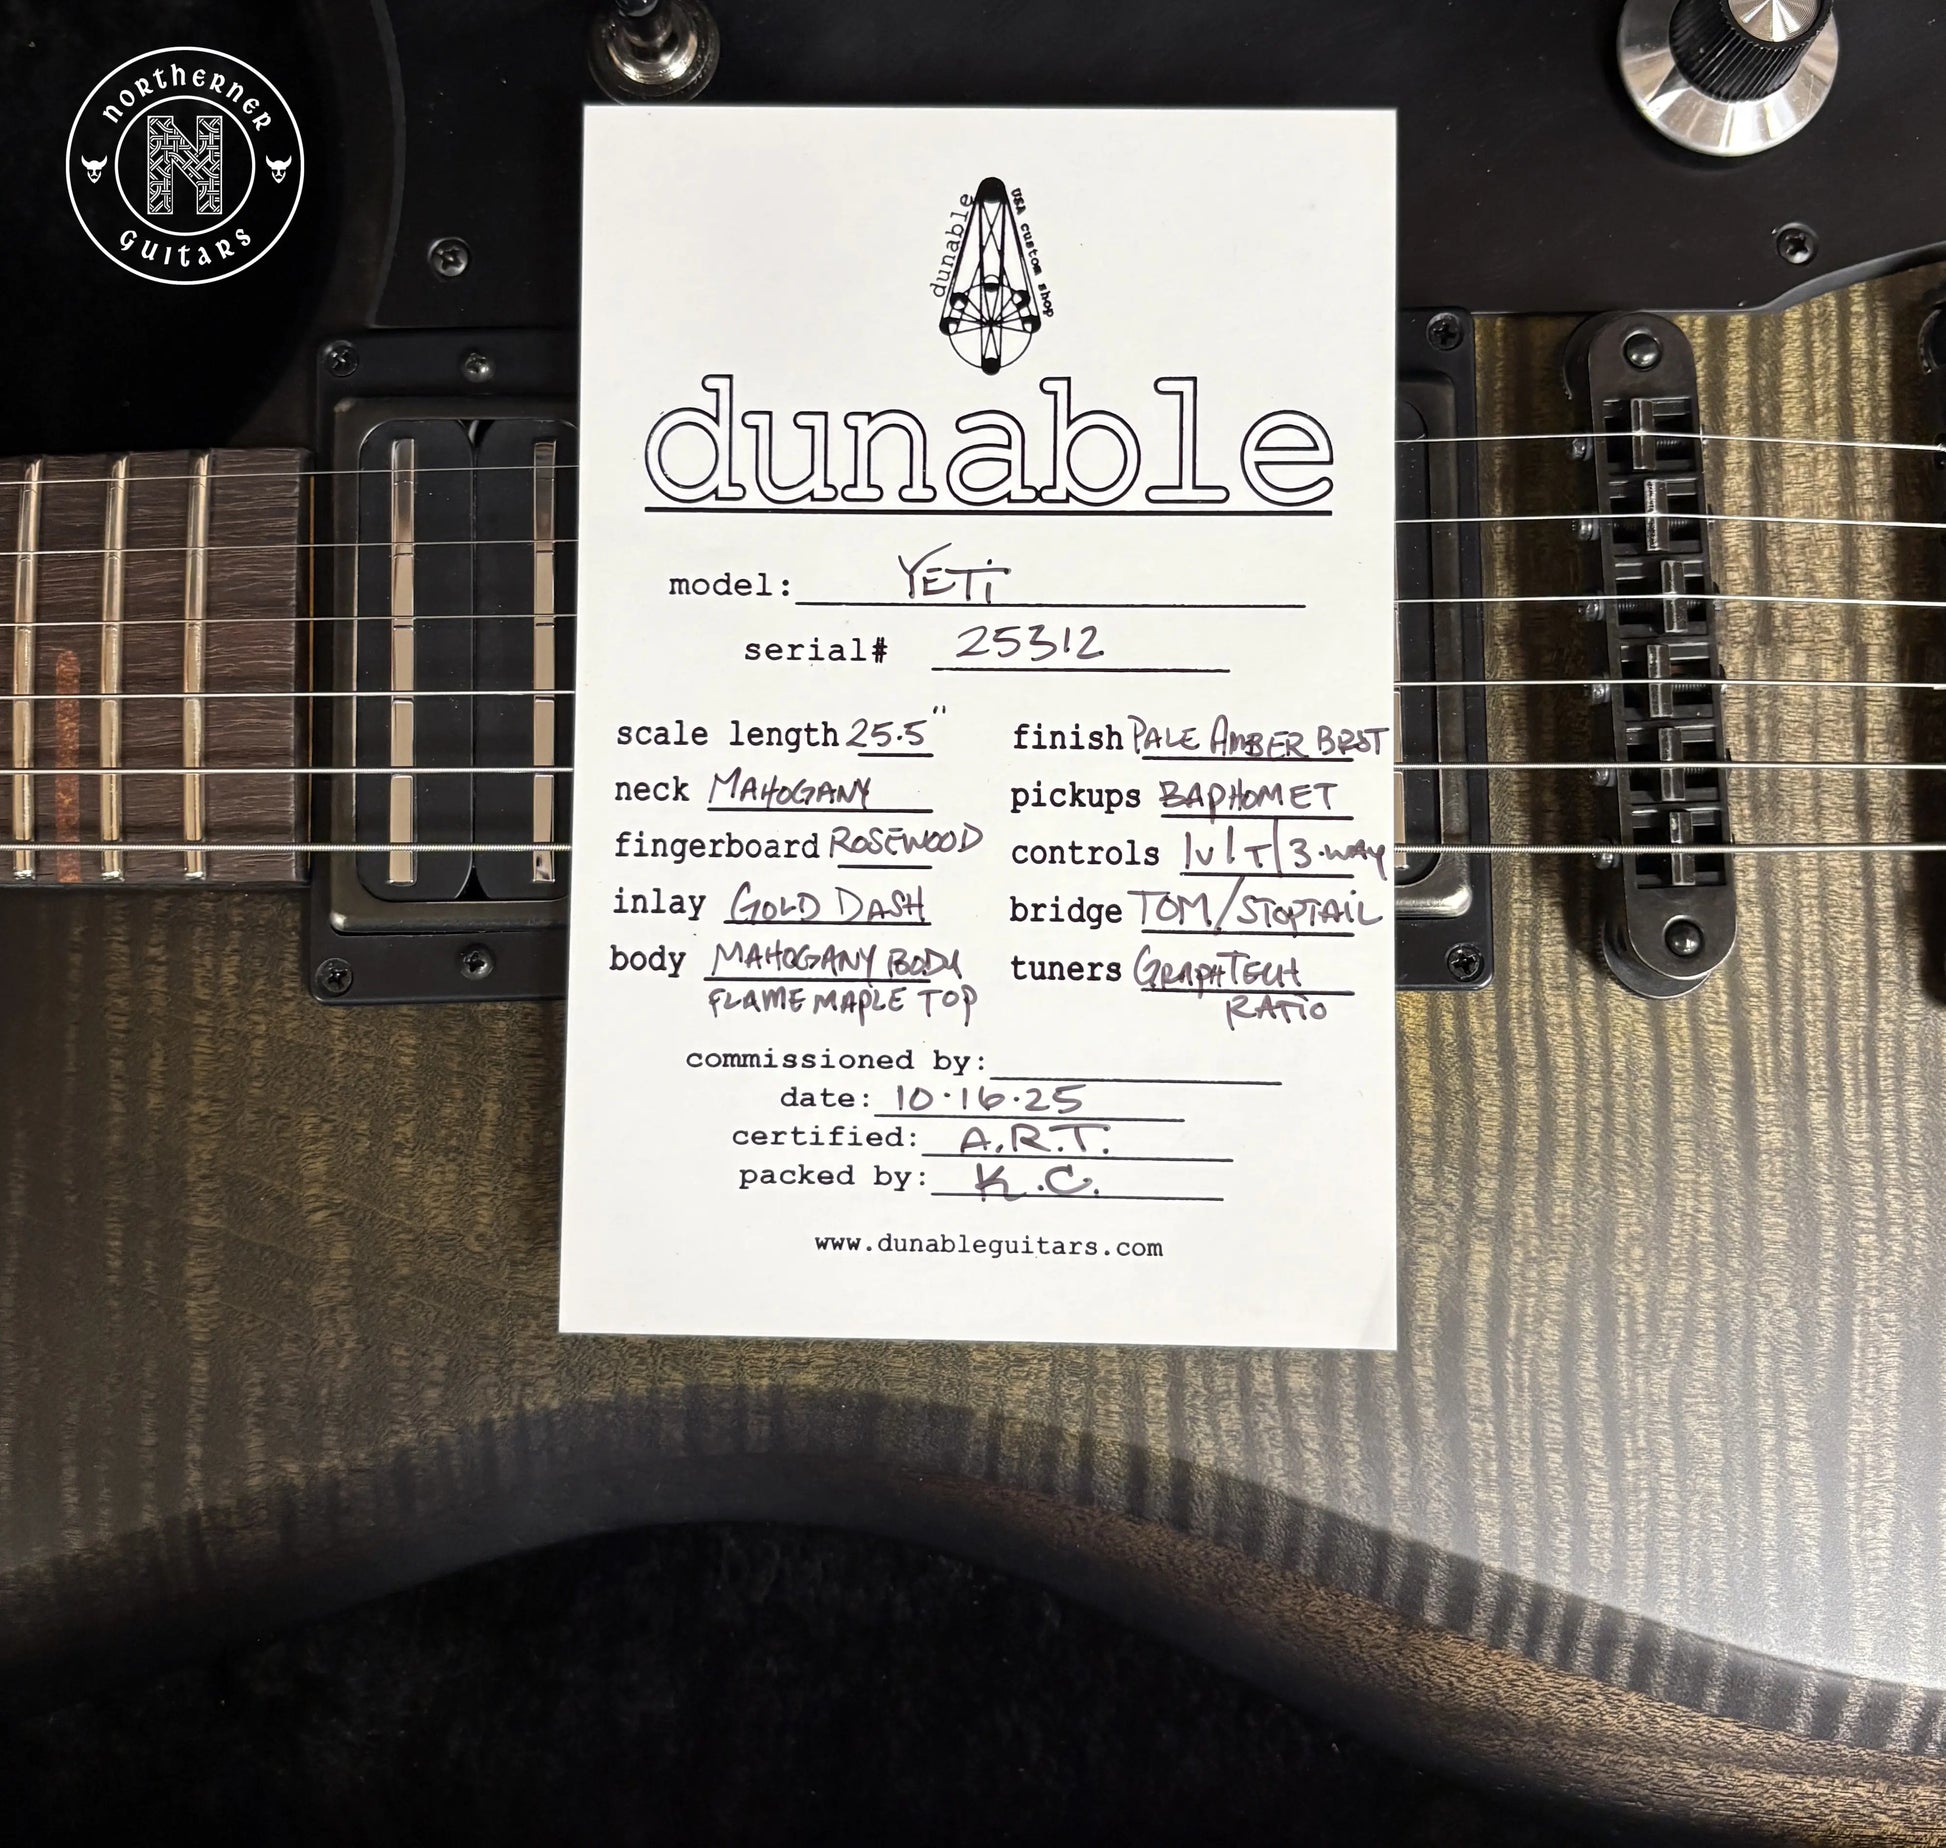 NORTHERNER
N
GUITARS
dunable
USA custom shop
dunable
model: YETi
serial# 25312
scale length 25.5"
neck MAHOGANY
fingerboard ROSEWOOD
inlay GOLD DASH
body MAHOGANY BODY
FLAME MAPLE TOP
finish PALE AMBER BRST
pickups BAPHOMET
controls 1V/1T/3-WAY
bridge TOM/STOPTAiL
tuners GRAPHTECH
RATiO
commissioned by:
date: 10·16·25
certified: A.R.T.
packed by: K.C.
www.dunableguitars.com